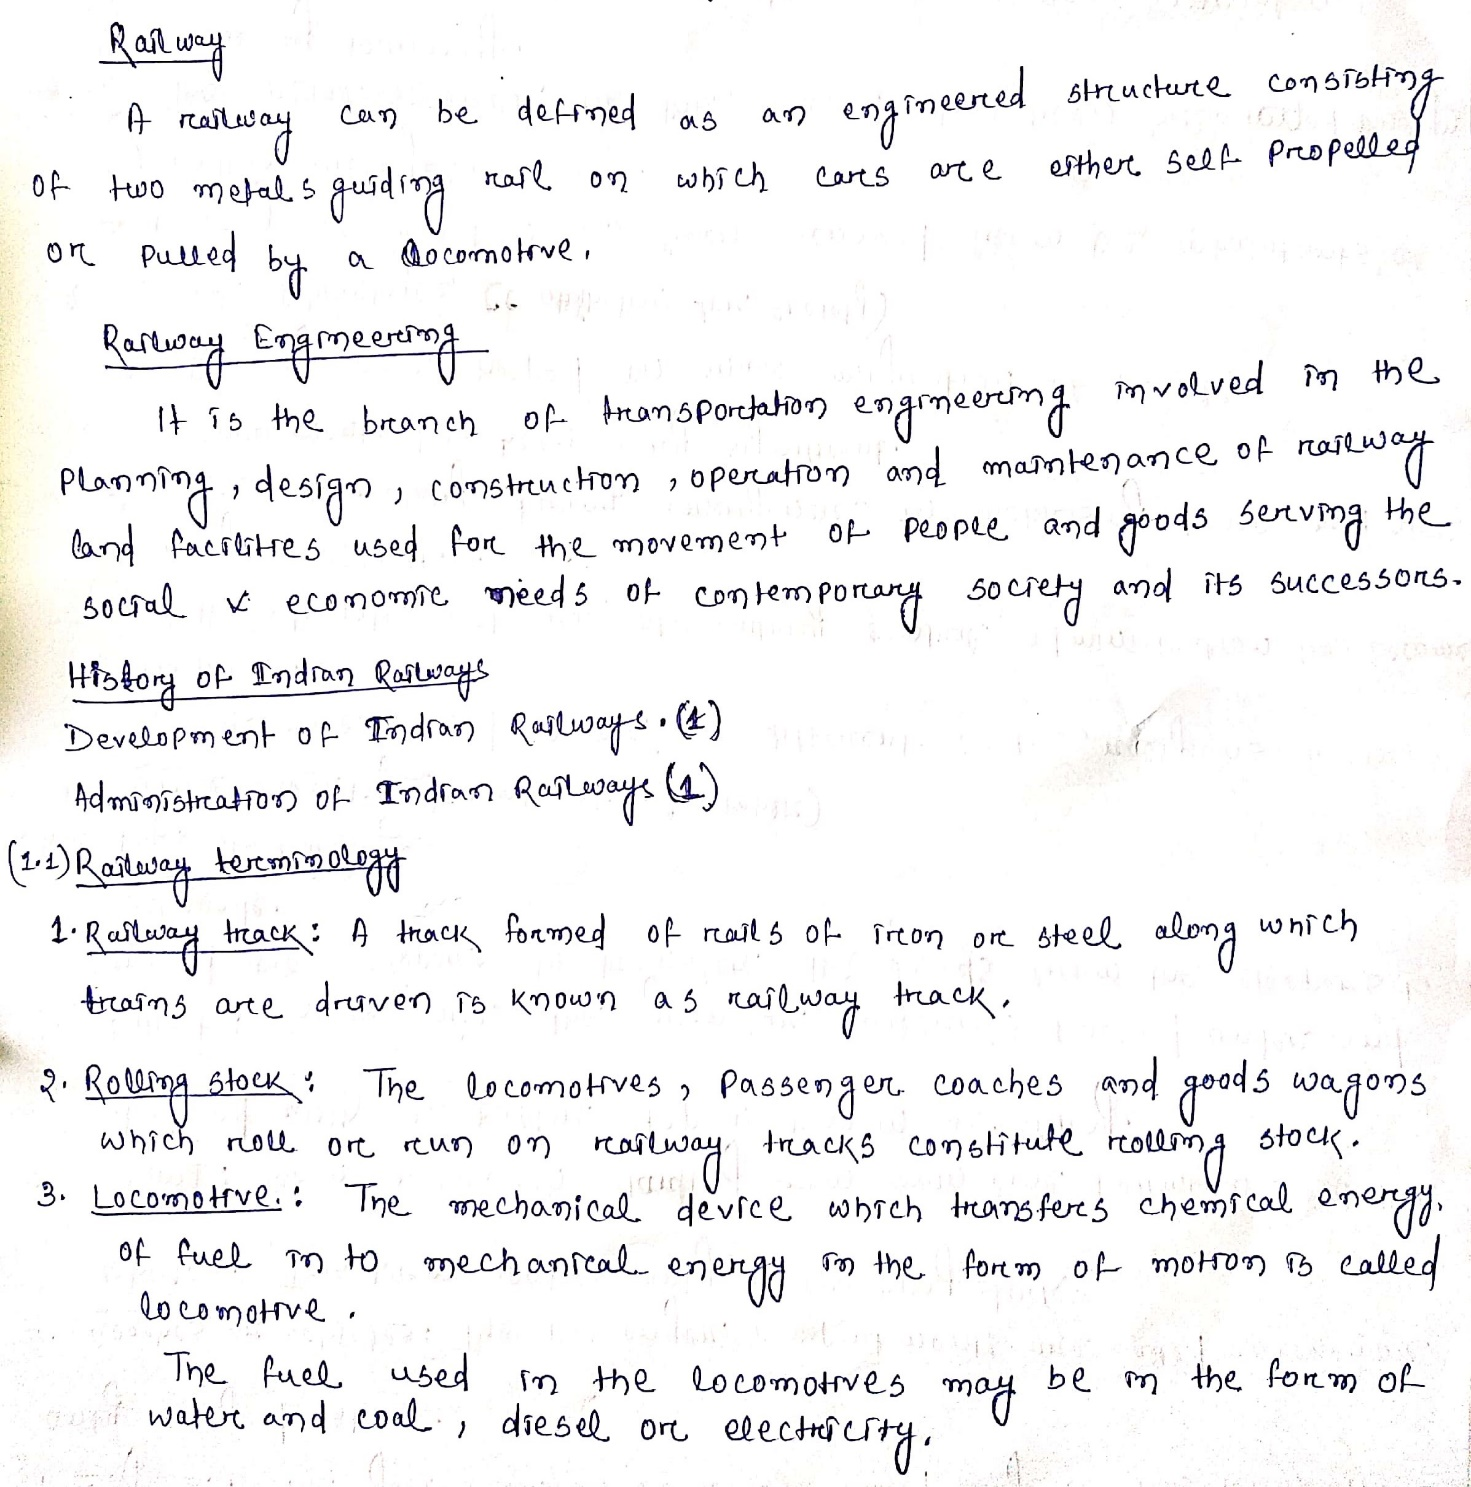 Railway
A railway can be defined as an engineered structure consisting
of two metals guiding rail on which cars are either self propelled
or pulled by a locomotive.
Railway Engineering
It is the branch of transportation engineering involved in the
planning, design, construction, operation and maintenance of railway
land facilities used for the movement of people and goods serving the
social & economic needs of contemporary society and its successors.
History of Indian Railways
Development of Indian Railways. (1)
Administration of Indian Railways (1)
(1.1) Railway terminology
1. Railway track: A track formed of rails of iron or steel along which
trains are driven is known as railway track.
2. Rolling stock: The locomotives, passenger coaches and goods wagons
which roll or run on railway tracks constitute rolling stock.
3. Locomotive.: The mechanical device which transfers chemical energy
of fuel in to mechanical energy in the form of motion is called
locomotive.
The fuel used in the locomotives may be in the form of
water and coal, diesel or electricity.